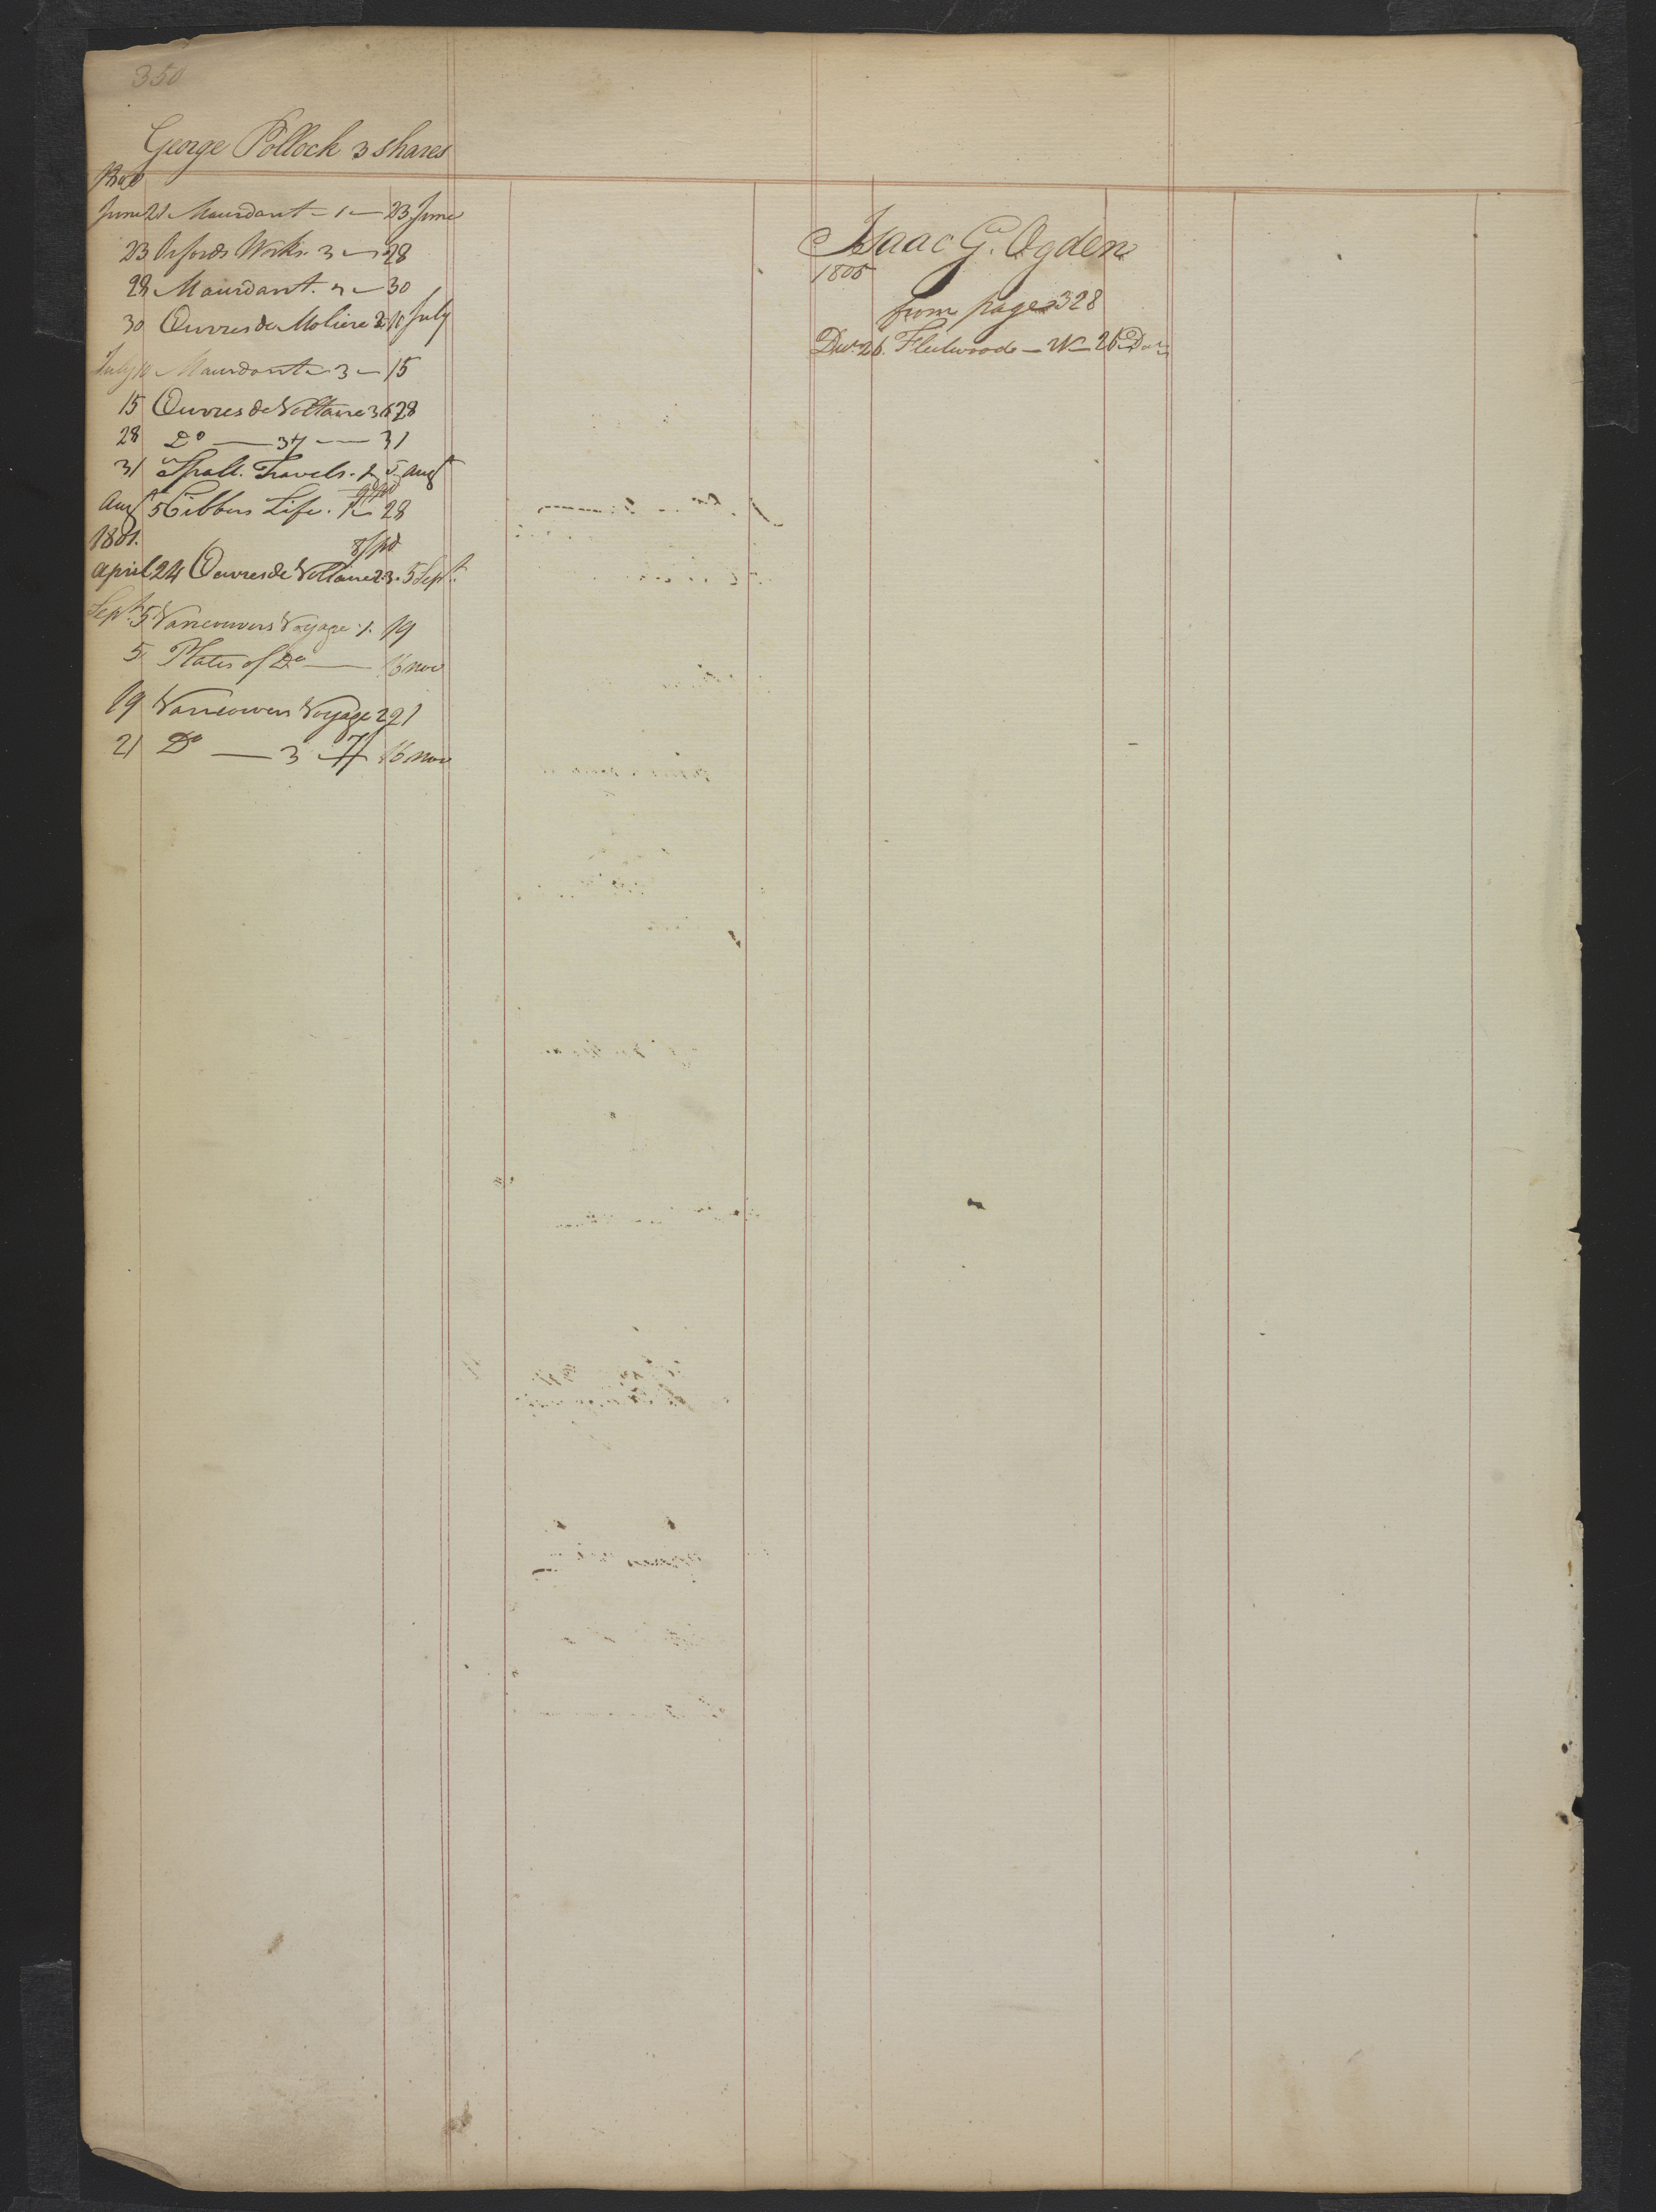 350
George Pollock 3 shares
1800
June 21 Mourdant - 1 - 23 June
23 Orfords Works. 3 - 28
28 Mourdant. 2 - 30
30 Œuvres de Moliere 2. 10 July
July 10 Mourdant - 3 - 15
15 Œuvres de Voltaire 36 28
28 Do - 37 - 31
31 Travels. 2 5 Augt
Augt 5 Cibbers Life. 1 - 28
1801.
8/pd
April 24 Œuvres de Voltaire 23. 5 Sept.
Sept. 5 Vancouvers Voyage. 1. 19
5 Plates of Do - 16 Nov
19 Vancouvers Voyage 2 21
21 Do - 3 - 16 Nov
Isaac G. Ogden
1805
from page 328
Decr. 26. Fleetwood - W - 26 Dec